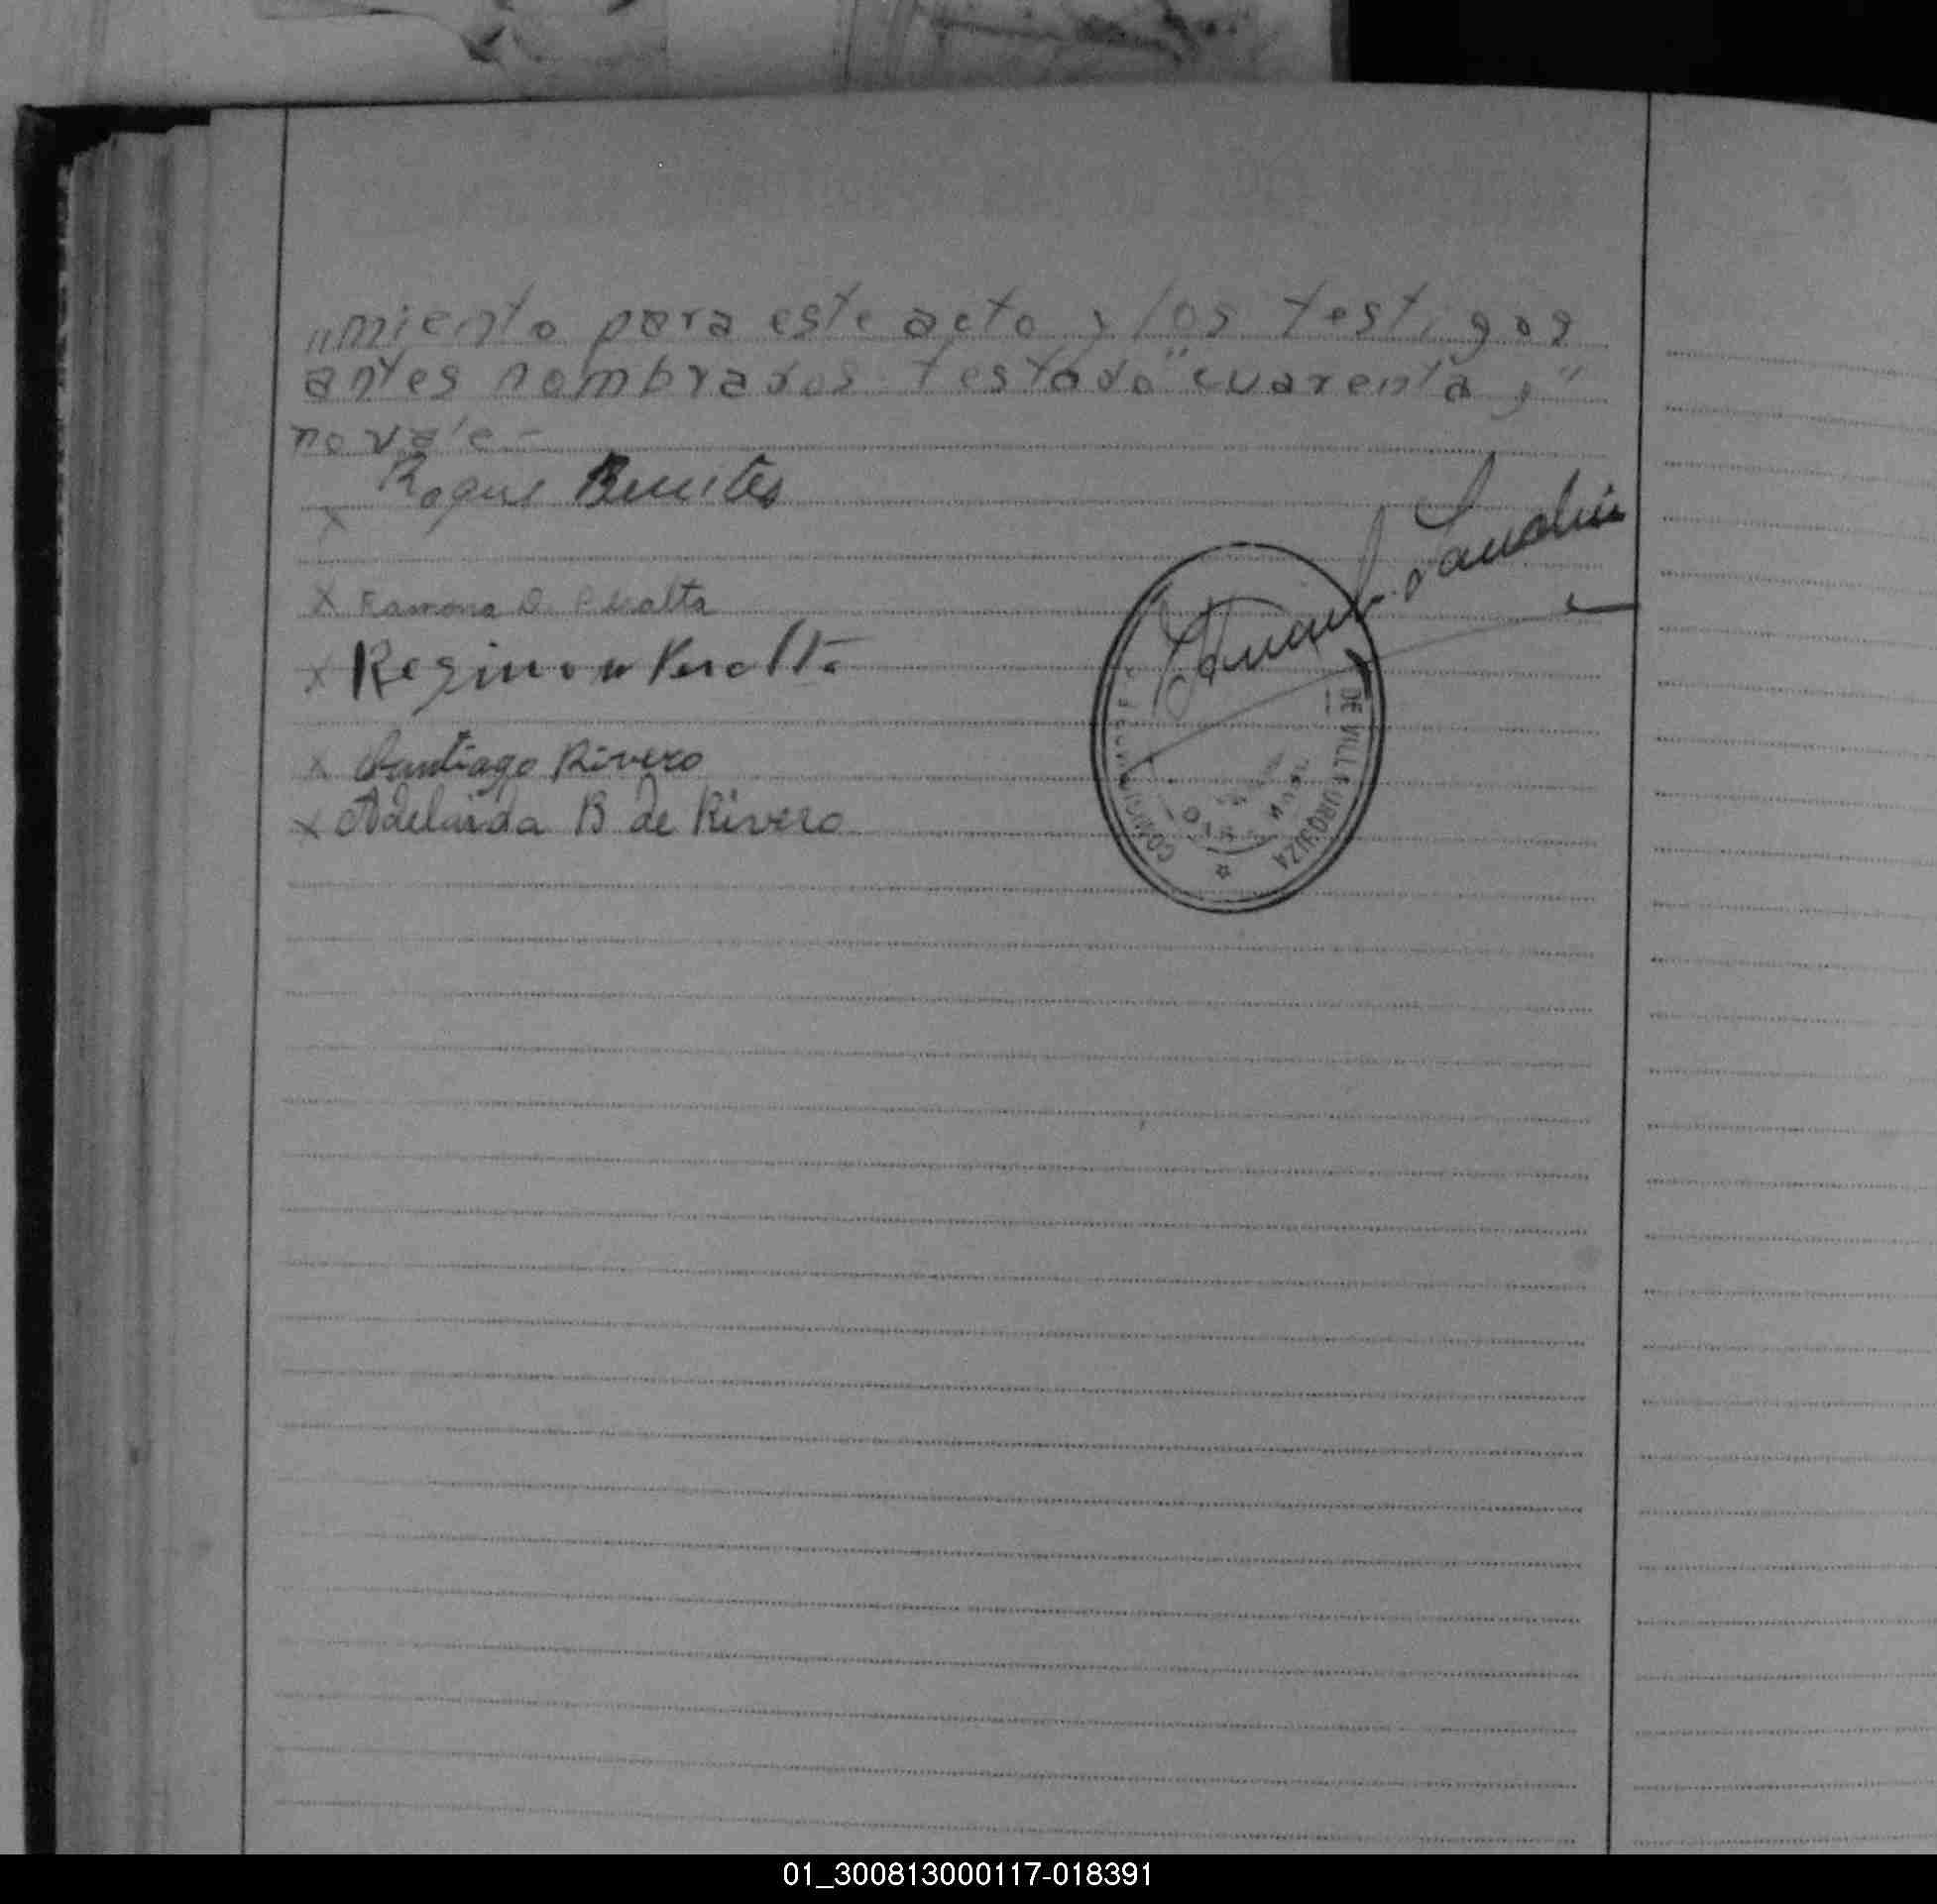 „miento para este acto y los testigos
antes nombrados testado "cuarenta y"
no vale -
Roque Benites
X
X Ramona D. Peralta
X Regino Peralta
X Santiago Rivero
X Adelaida B de Rivero
DE VILLA URQUIZA
01_300813000117-018391